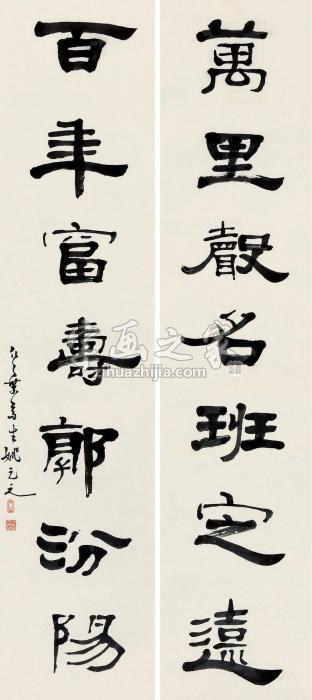 萬里聲名班定遠
百年富壽郭汾陽
姚元之
画之家
huazhijia.com